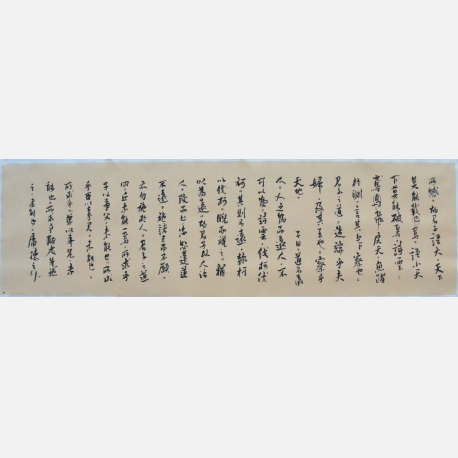 所憾。故君子語大。天下
莫能載焉。語小。天
下莫能破焉。詩云。
鳶飛戾天。魚躍
於淵。言其上下察也。
君子之道。造端乎夫
婦。及其至也。察乎
天地。 子曰。道不遠
人。人之為道而遠人。不
可以為道。詩云。伐柯伐
柯。其則不遠。執柯
以伐柯。睨而視之。猶
以為遠。故君子以人治
人。改而止。忠恕違道
不遠。施諸己而不願。
亦勿施於人。君子之道
四。丘未能一焉。所求乎
子以事父。未能也。所求
乎臣以事君。未能也。
所求乎弟以事兄。未
能也。所求乎朋友先施
之。未能也。庸德之行